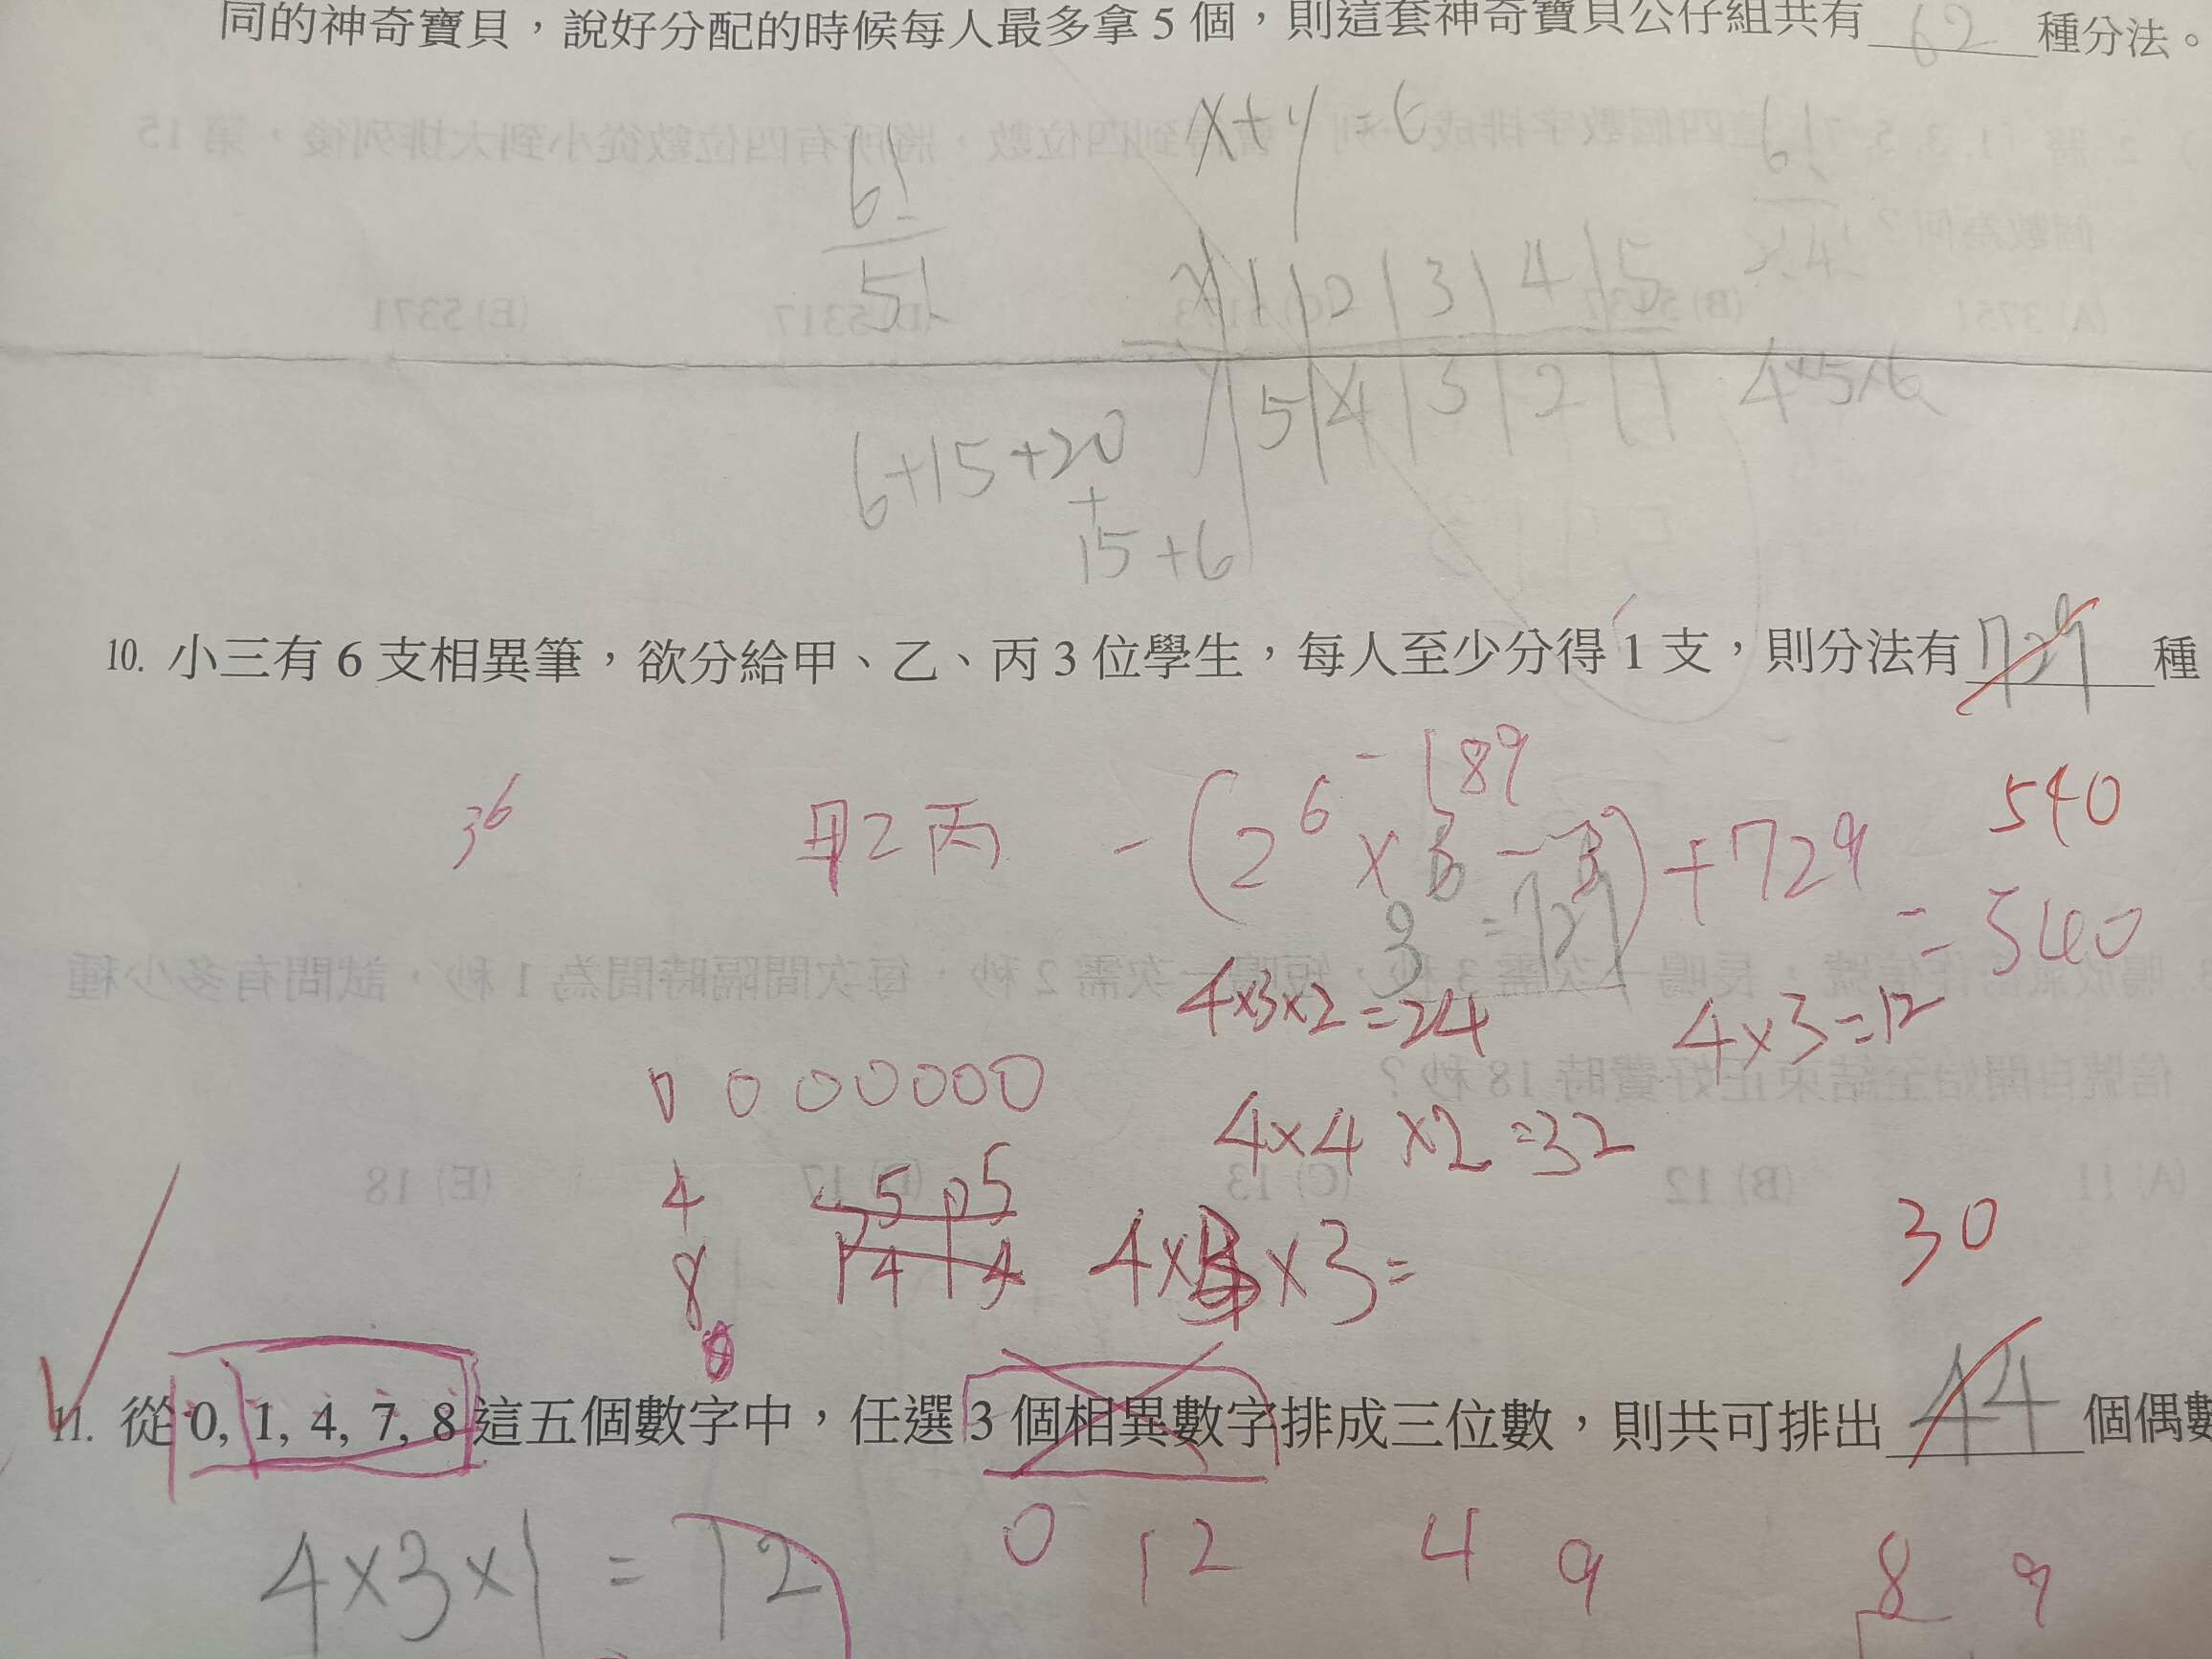 同的神奇寶貝，說好分配的時候每人最多拿 5 個，則這套神奇寶貝公仔組共有 62 種分法。
6!
5!
x+y=6
6!
2!4!
x 1 2 3 4 5
y 5 4 3 2 1
4×5×6
6+15+20
+
15+6
10. 小三有 6 支相異筆，欲分給甲、乙、丙 3 位學生，每人至少分得 1 支，則分法有 729 種
540
3⁶
甲乙丙
-189
-(2⁶×3-3)+729
=540
4×3×2=24
4×3=12
0 0 0 0 0 0 0
4×4×2=32
4
8
5 5
4 4
×3=
30
11. 從 0, 1, 4, 7, 8 這五個數字中，任選 3 個相異數字排成三位數，則共可排出 44 個偶數
4×3×1=12
0 12 4 9 8 9